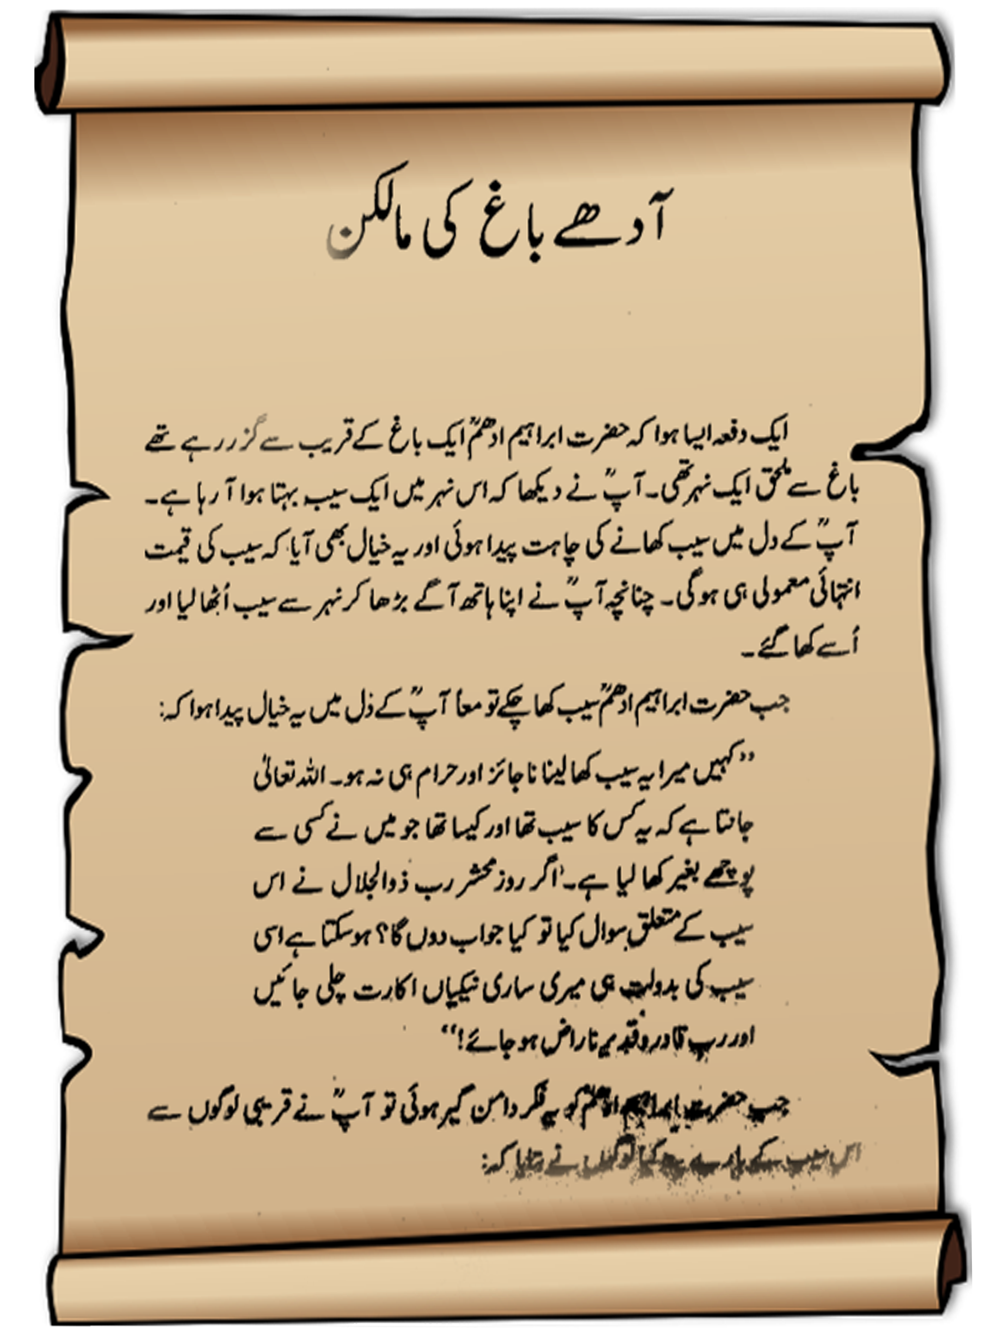 آدھے باغ کی مالکن
ایک دفعہ ایسا ہوا کہ حضرت ابراہیم ادھمؒ ایک باغ کے قریب سے گزر رہے تھے
باغ سے ملحق ایک نہر تھی۔ آپؒ نے دیکھا کہ اس نہر میں ایک سیب بہتا ہوا آ رہا ہے۔
آپؒ کے دل میں سیب کھانے کی چاہت پیدا ہوئی اور یہ خیال بھی آیا کہ سیب کی قیمت
انتہائی معمولی ہی ہو گی۔ چنانچہ آپؒ نے اپنا ہاتھ آگے بڑھا کر نہر سے سیب اُٹھا لیا اور
اُسے کھا گئے۔
جب حضرت ابراہیم ادھمؒ سیب کھا چکے تو معاً آپؒ کے دل میں یہ خیال پیدا ہوا کہ:
”کہیں میرا یہ سیب کھا لینا ناجائز اور حرام ہی نہ ہو۔ اللہ تعالیٰ
جانتا ہے کہ یہ کس کا سیب تھا اور کیسا تھا جو میں نے کسی سے
پوچھے بغیر کھا لیا ہے۔ اگر روز محشر رب ذوالجلال نے اس
سیب کے متعلق سوال کیا تو کیا جواب دوں گا؟ ہو سکتا ہے اسی
سیب کی بدولت ہی میری ساری نیکیاں اکارت چلی جائیں
اور رب قادر و قدیر ناراض ہو جائے!“
جب حضرت ابراہیم ادھمؒ کو یہ فکر دامن گیر ہوئی تو آپؒ نے قریبی لوگوں سے
اس سیب کے بارے لوگوں نے بتایا کہ: